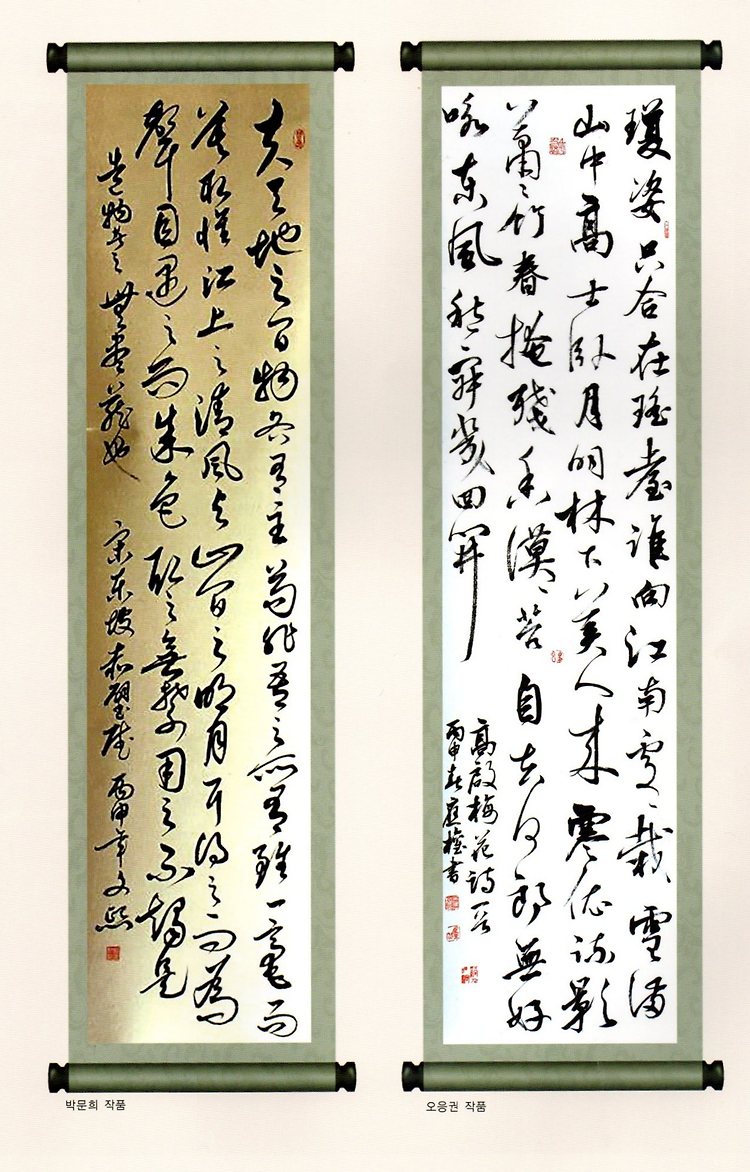 夫天地之間物各有主苟非吾之所有雖一毫而
莫取惟江上之清風与山間之明月耳得之而為
聲目遇之而成色取之無禁用之不竭是
造物者之無盡藏也 宋東坡赤壁賦 丙申年文熙
박문희 작품
瓊姿只合在瑤臺誰向江南處々栽雪滿
山中高士臥月明林下美人來寒依疎影
蕭々竹春掩殘香漠々苔自去何郎無好
咏東風愁寂幾回開
高啟梅花詩一首
丙申春應權書
오응권 작품